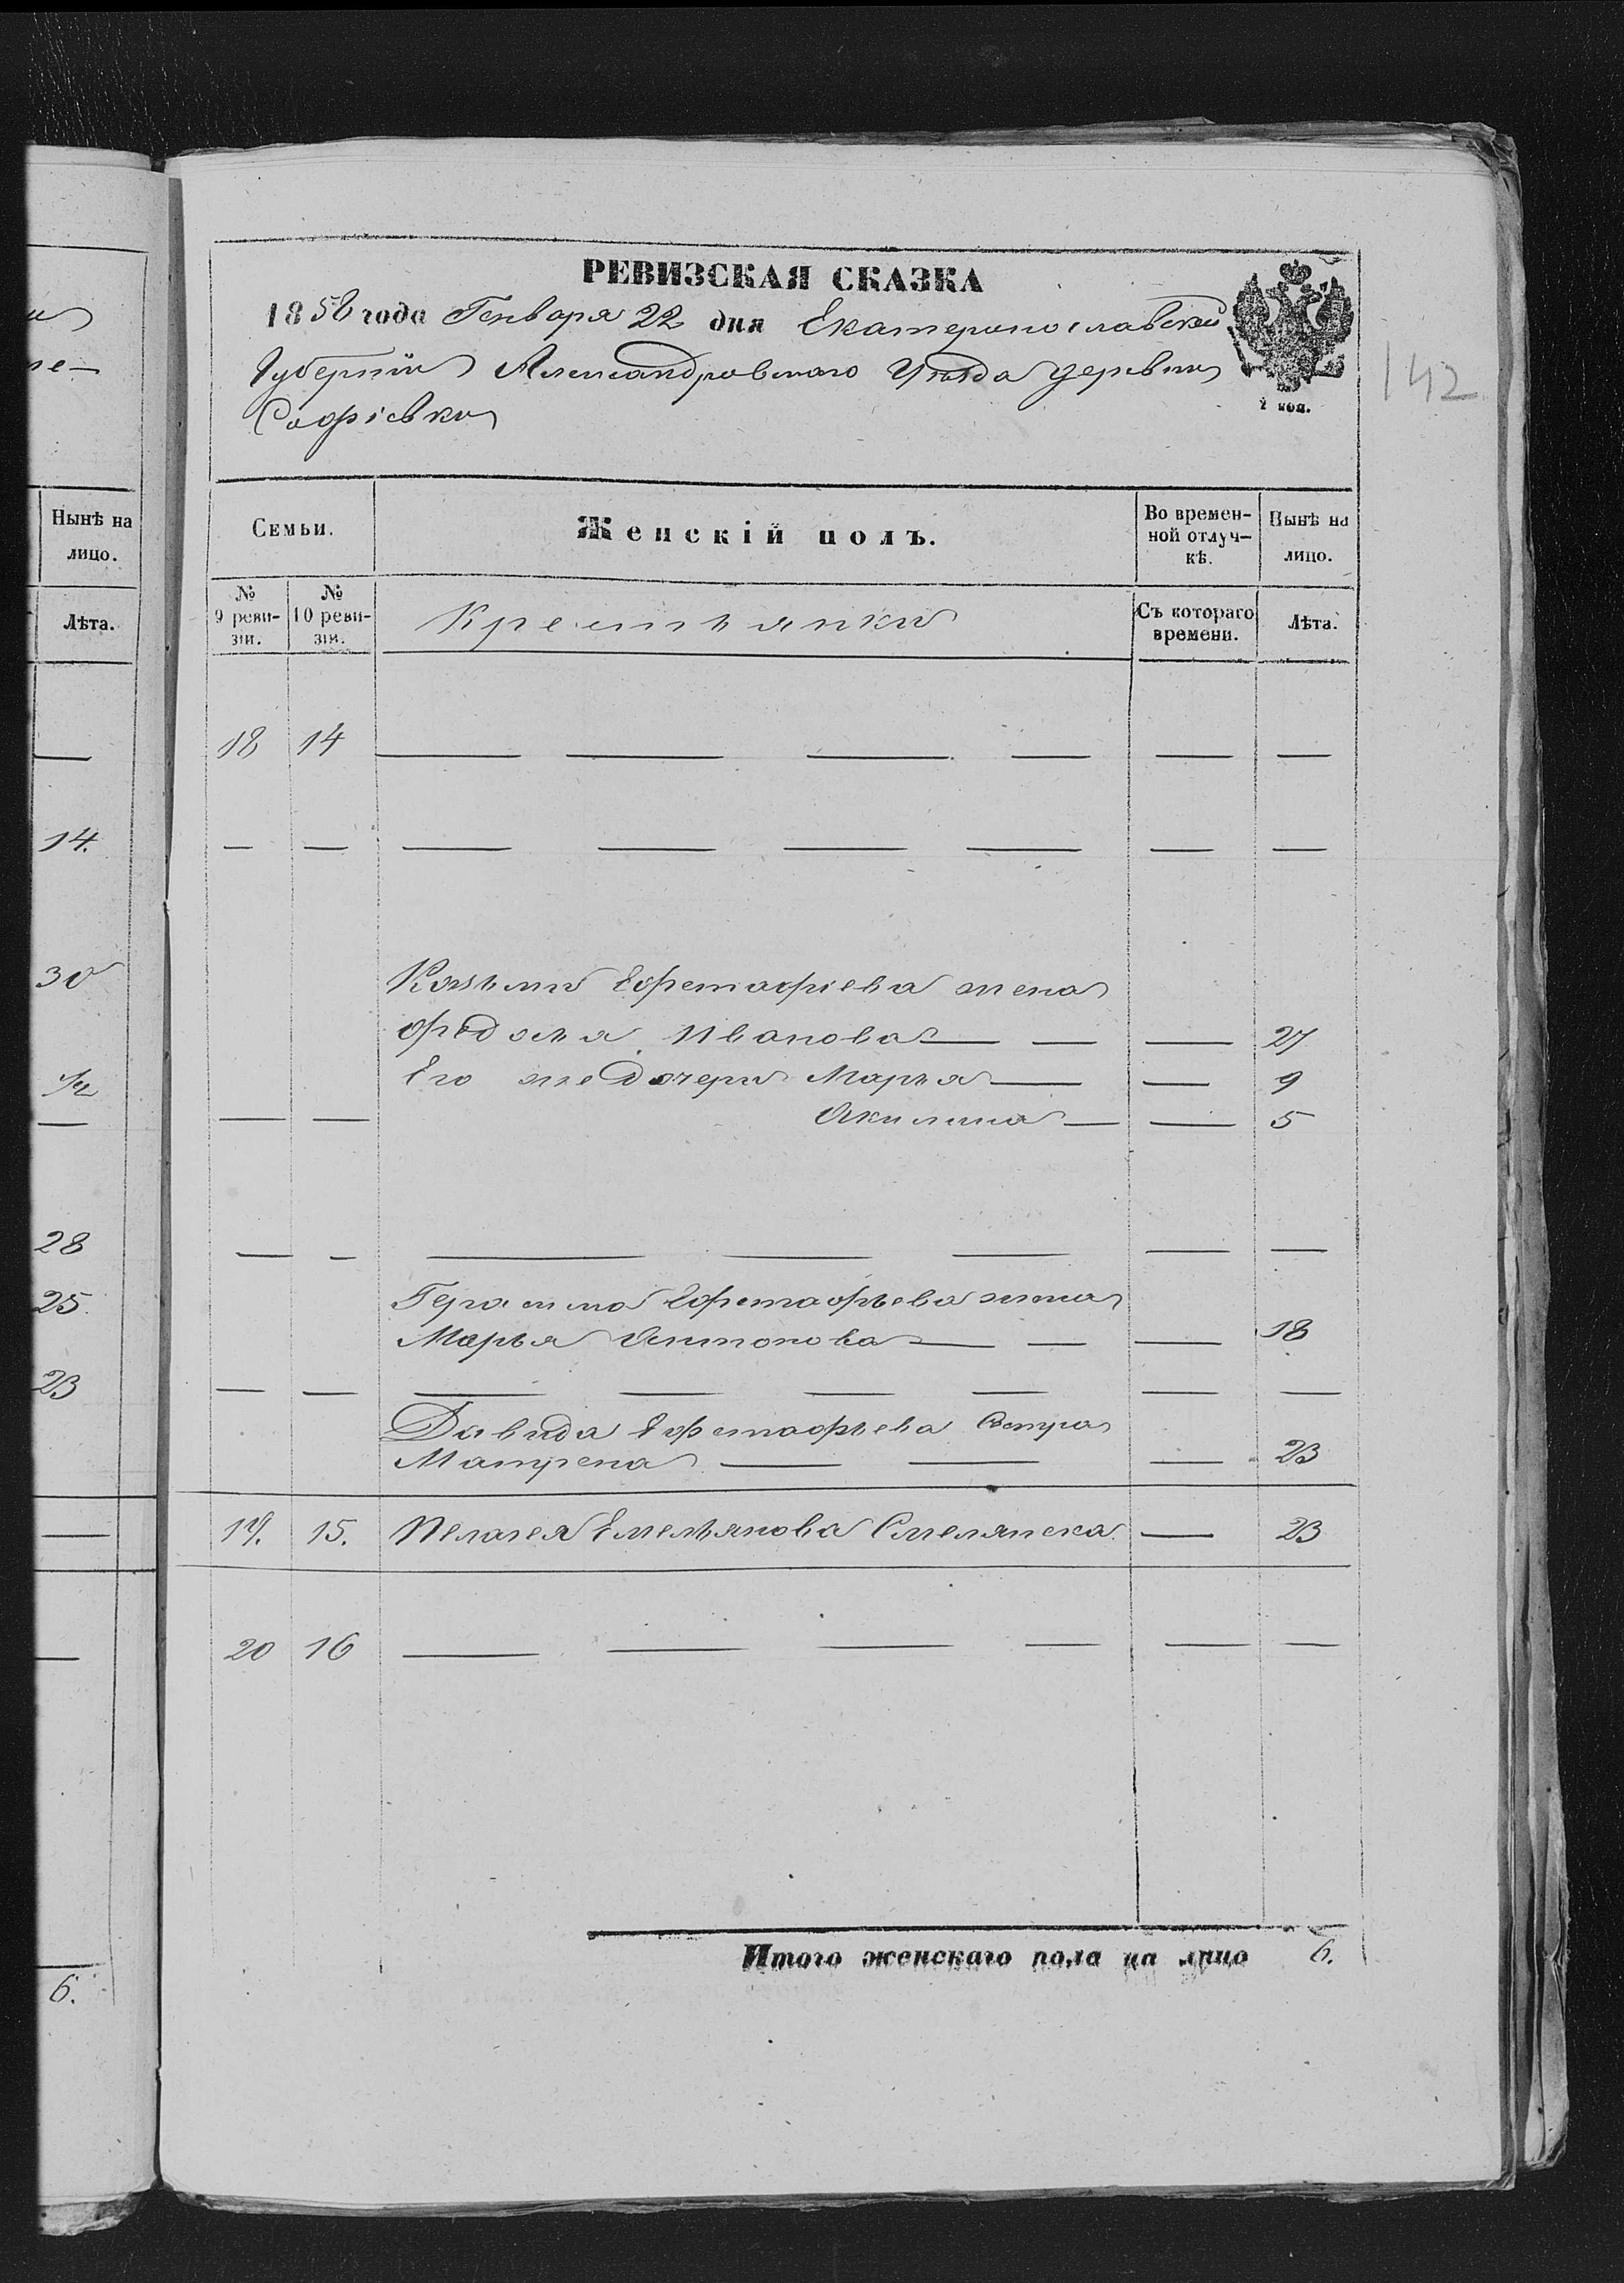 РЕВИЗСКАЯ СКАЗКА
1858 года Генваря 22 дня Екатеринославской
Губерніи Александровскаго Уѣзда деревни
Софіевки
2 коп.
142
Нынѣ на
лицо.
Лѣта.
14.
30
1/2
28
25.
23
6.
Семьи.
Женскій полъ.
Во времен-
ной отлуч-
кѣ.
Нынѣ на
лицо.
№
9 реви-
зіи.
№
10 реви-
зіи.
Крестьянки
Съ котораго
времени.
Лѣта.
18 14 — — — — — —
— — — — — — — —
Козьмы Ефстафіева жена
Федосья Иванова — — — 27
Его же дочери Марья — — 9
— — Акилина — — 5
— — — — — — —
Герасима Ефстафьева жена
Марья Антонова — — — 18
— — — — — — — —
Давида Ефстафьева Сестра
Матрена — — — 23
19. 15. Пелагея Емельянова Смелянска — 23
20 16 — — — — — —
Итого женскаго пола на лицо 6.